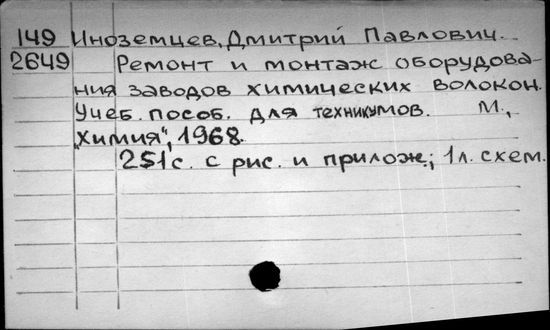 149 Иноземцев, Дмитрий Павлович.
2649 Ремонт и монтаж оборудова-
ния заводов химических волокон.
Учеб. пособ. для техникумов. М.,
„Химия", 1968.
251 с. с рис. и прилож.; 1 л. схем.